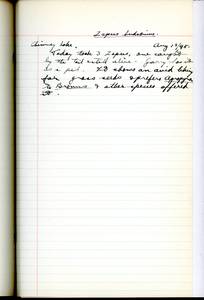 Zapus hudsonius.
Chimney Lake. Aug 19/45.
Today took 3 Zapus, one caught
by the tail still alive. Gary has it
as a pet. It shows an avid liking
for grass seeds & prefers Agropyron
to Bromus & other species offered
it.